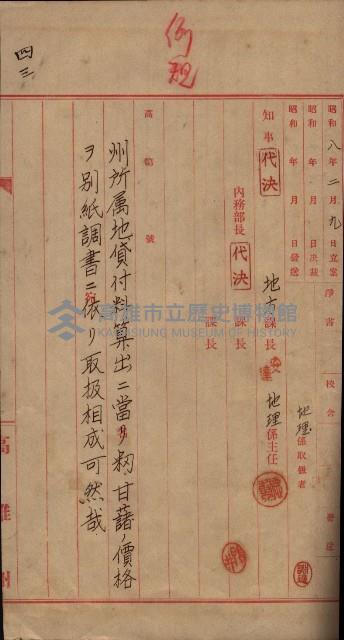 例規
四三
昭和八年二月九日立案
昭和 年 月 日決裁
昭和 年 月 日發送
淨書
校合
發送
地理係取扱者
知事 代決
地方課長
地理係主任
內務部長 代決
課長
課長
高 第 號
州所属地貸付料算出ニ當リ籾甘藷ノ價格
ヲ別紙調書ニ依リ取扱相成可然哉
高雄州
高雄市立歷史博物館
KAOHSIUNG MUSEUM OF HISTORY